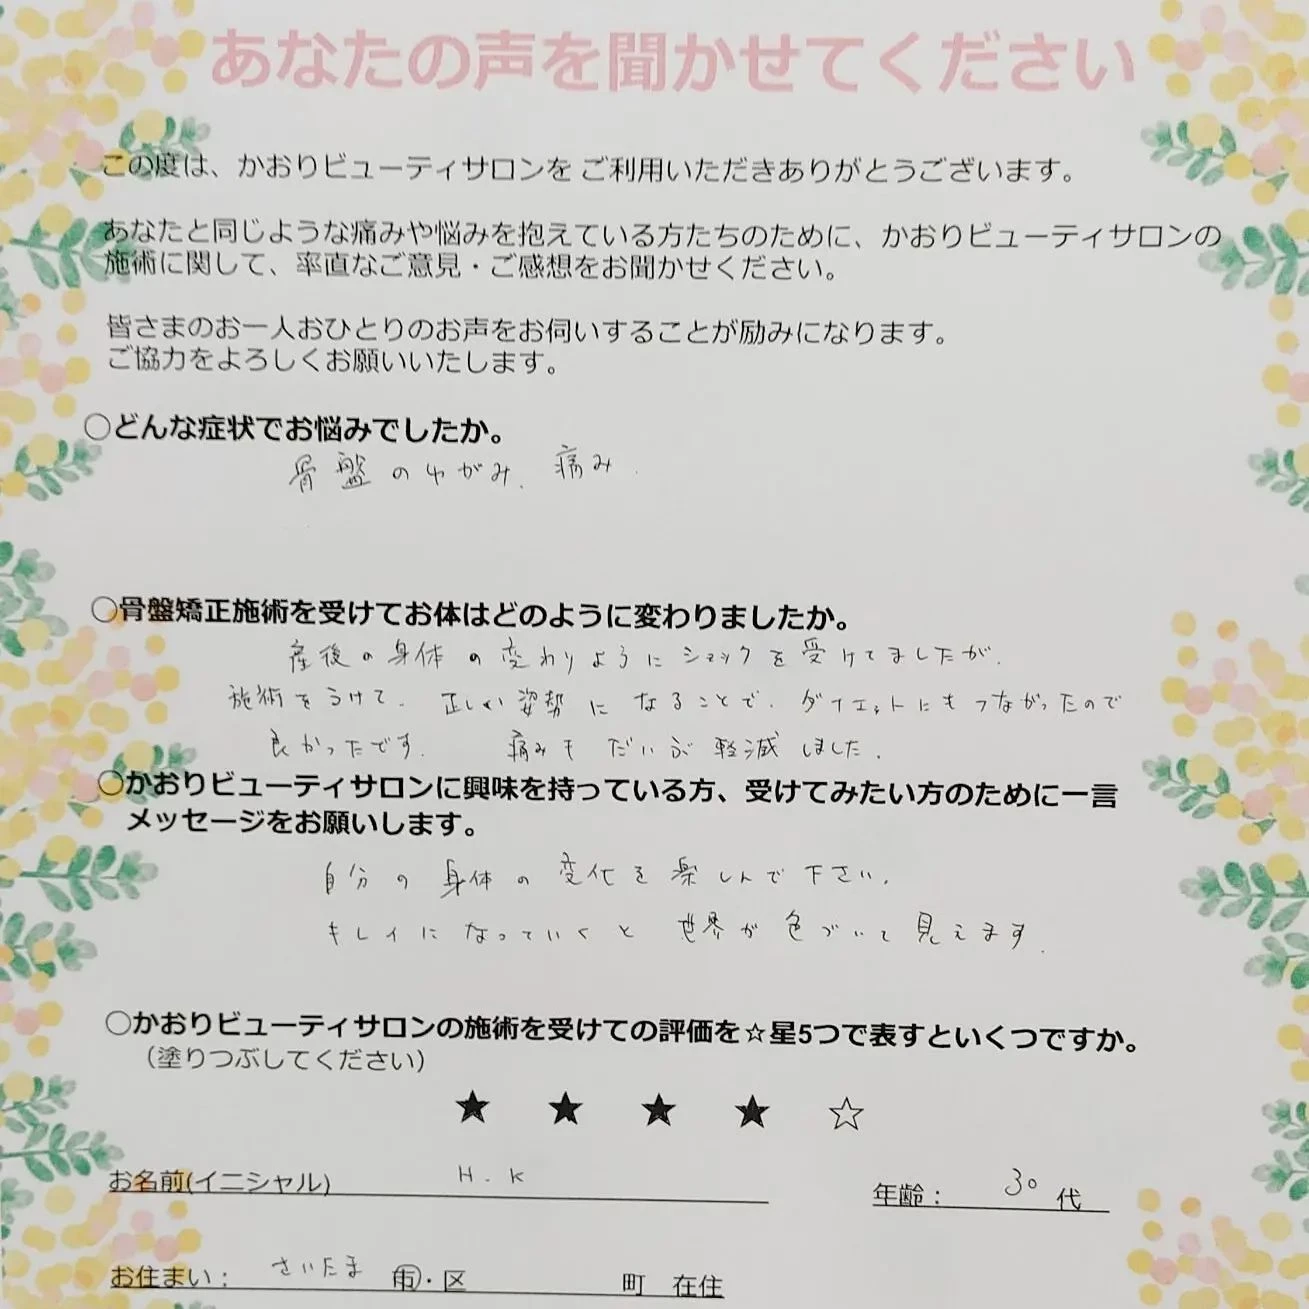 あなたの声を聞かせてください
この度は、かおりビューティサロンを ご利用いただきありがとうございます。
あなたと同じような痛みや悩みを抱えている方たちのために、かおりビューティサロンの
施術に関して、率直なご意見・ご感想をお聞かせください。
皆さまのお一人おひとりのお声をお伺いすることが励みになります。
ご協力をよろしくお願いいたします。
○どんな症状でお悩みでしたか。
骨盤のゆがみ、痛み.
○骨盤矯正施術を受けてお体はどのように変わりましたか。
産後の身体の変わりようにショックを受けてましたが、
施術をうけて、正しい姿勢になることで、ダイエットにもつながったので
良かったです。 痛みもだいぶ軽減しました。
○かおりビューティサロンに興味を持っている方、受けてみたい方のために一言
メッセージをお願いします。
自分の身体の変化を楽しんで下さい。
キレイになっていくと世界が色づいて見えます。
○かおりビューティサロンの施術を受けての評価を☆星5つで表すといくつですか。
（塗りつぶしてください）
★ ★ ★ ★ ☆
お名前(イニシャル) H.K 年齢： 30 代
お住まい： さいたま 市・区 町 在住